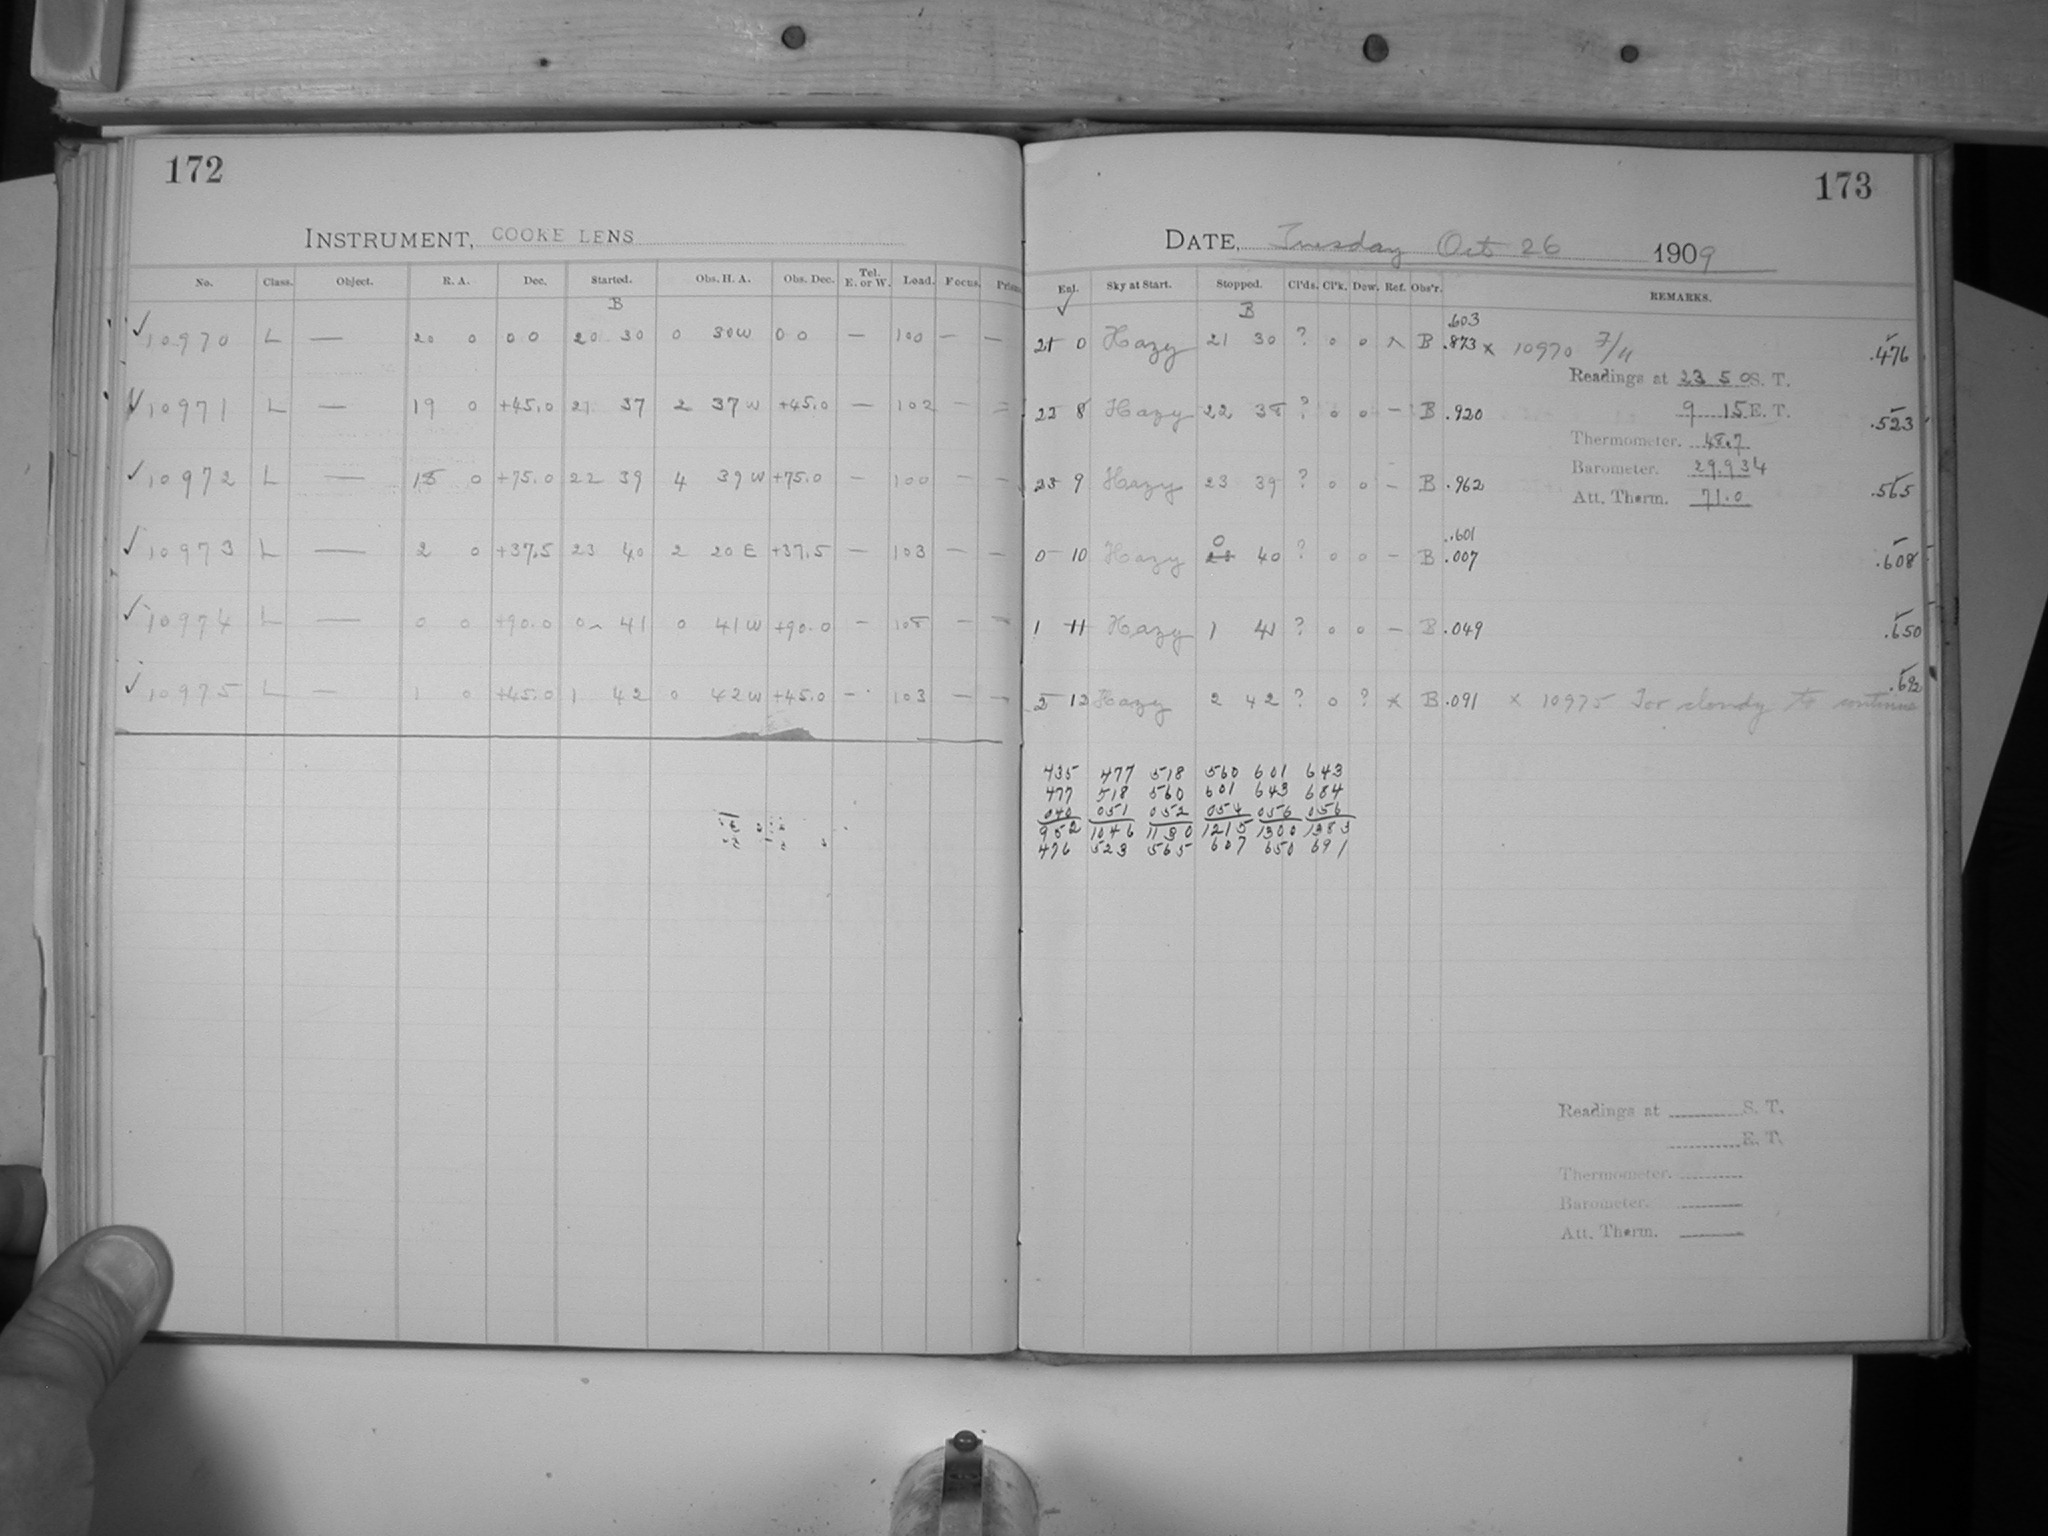 172
INSTRUMENT, COOKE LENS
No. Class. Object. R. A. Dec. Started. Obs. H. A. Obs. Dec. Tel. E. or W. Load. Focus. Prisms
B
✓ 10970 L — 20 0 0 0 20 30 0 30W 0 0 — 100 — —
✓ 10971 L — 19 0 +45.0 21 37 2 37W +45.0 — 102 — —
✓ 10972 L — 18 0 +75.0 22 39 4 39W +75.0 — 100 — —
✓ 10973 L — 2 0 +37.5 23 40 2 20E +37.5 — 103 — —
✓ 10974 L — 0 0 +90.0 0 41 0 41W +90.0 — 108 — —
✓ 10975 L — 1 0 +45.0 1 42 0 42W +45.0 — 103 — —
173
DATE, Tuesday Oct 26 1909
Exl. Sky at Start. Stopped. Cl'ds. Cl'k. Dew. Ref. Obs'r. REMARKS.
✓ B
.603
21 0 Hazy 21 30 ? 0 0 B .873 x 10970 7/11 .476
Readings at 23 50 S. T.
22 8 Hazy 22 38 ? 0 0 — B .920 9 15 E. T. .523
Thermometer. 48.7
Barometer. 29.934
23 9 Hazy 23 39 ? 0 0 — B .962 .565
Att. Therm. 71.0
0 .601
0 10 Hazy 23 40 ? 0 0 — B .007 .608
1 11 Hazy 1 41 ? 0 0 — B .049 .650
.692
2 12 Hazy 2 42 ? 0 ? x B .091 x 10975 Too cloudy to continue
435 477 518 560 601 643
477 518 560 601 643 684
040 051 052 054 056 056
952 1046 1130 1215 1300 1383
476 523 565 607 650 691
Readings at S. T.
E. T.
Thermometer.
Barometer.
Att. Therm.